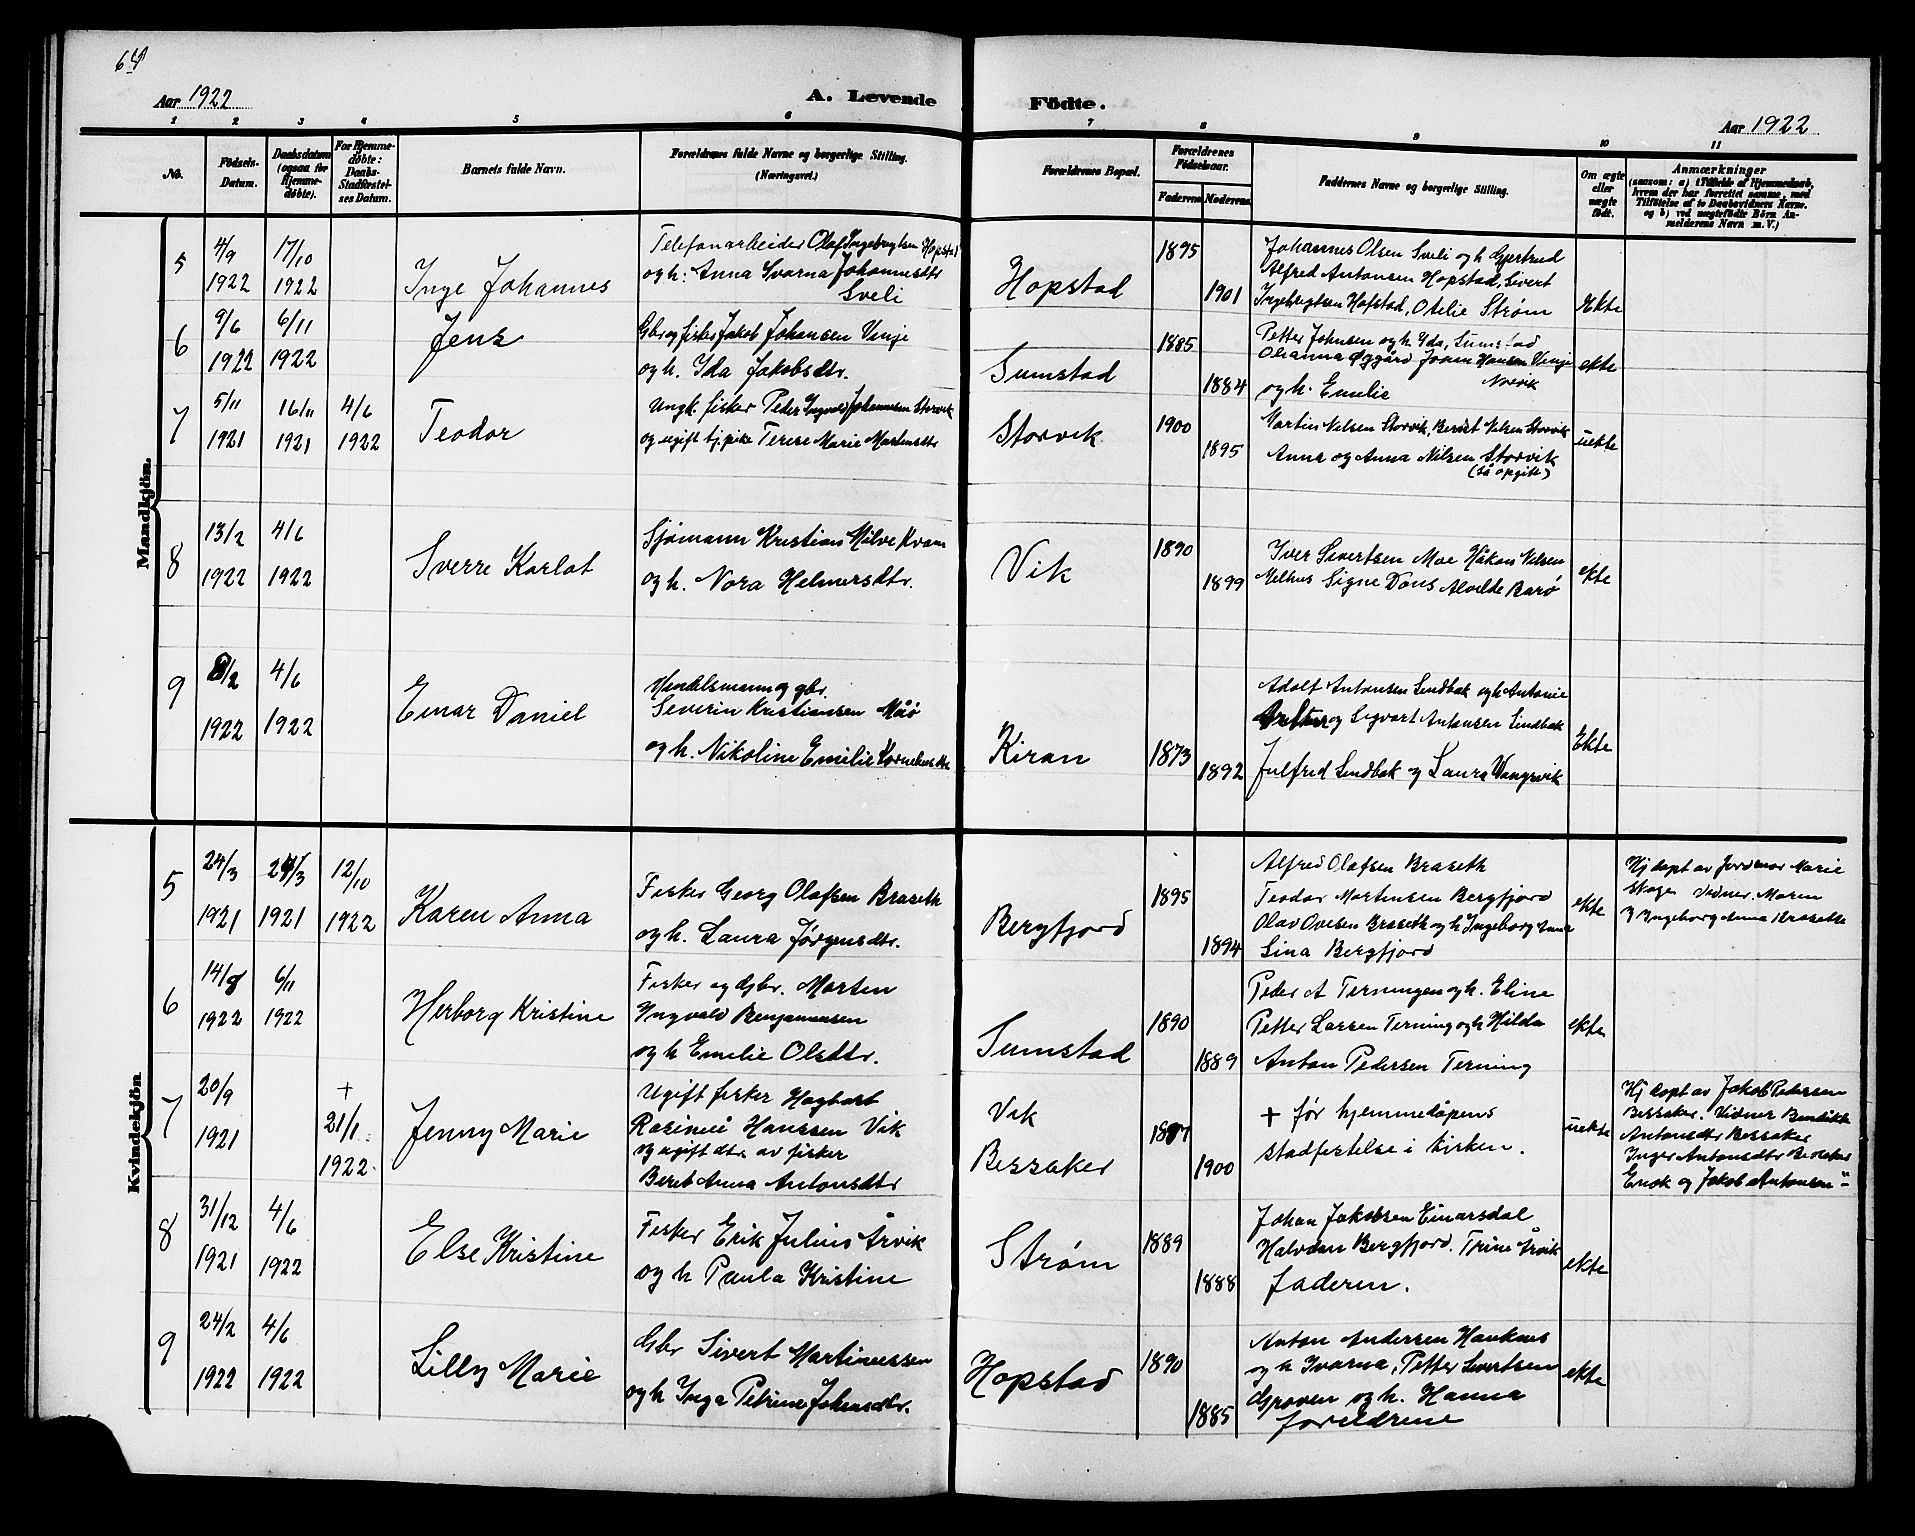 64
Aar 1922
A. Levende
Födte.
Aar 1922
1 2 3 4 5 6 7 8 9 10 11
No.
Födsels-
Datum.
Daabsdatum
(ogsaa for
Hjemme-
døbte).
For Hjemme-
døbte:
Daabs-
Stadfæstel-
ses Datum.
Barnets fulde Navn.
Forældrenes fulde Navne og borgerlige Stilling.
(Næringsvei.)
Forældrenes Bopæl.
Forældrenes
Födselsaar.
Faderens Moderens
Faddernes Navne og borgerlige Stilling.
Om ægte
eller
uægte
födt.
Anmærkninger
(saasom: a) i Tilfælde af Hjemmedaab,
hvem der har forrettet samme, med
Tilföielse af to Daabsvidners Navne.
og b) ved uægtefödte Börn An-
melderens Navn m. V.)
Mandkjön.
5
4/9
1922
17/10
1922
Inge Johannes
Telefonarbeider Olaf Ingebrigtsen Hopstad
og h: Anna Svarna Johannesdtr
Sveli
Hopstad
1895
1901
Johannes Olsen Sveli og h Gjertrud
Alfred Antonsen Hopstad, Sivert
Ingebrigtsen Hofstad, Otelie Strøm
Ekte
6
9/6
1922
6/11
1922
Jens
Gbr og fisker Jakob Johansen Vinje
og h. Ida Jakobsdtr.
Sumstad
1885
1884
Petter Johnsen og h Ida, Sumstad
Olianna Johan Hansen Vinje
og h. Emelie
ekte
7
5/11
1921
16/11
1921
4/6
1922
Teodor
Ungk. fisker Peder Ingvald Johannesen Storvik
og ugift tj.pike Terese Marie Martinsdtr
Storvik
1900
1895
Martin Nilsen Storvik, Bernt Nilsen Storvik
Anna og Anna Nilsen Storvik
(så opgitt)
uekte
8
13/2
1922
4/6
1922
Sverre Karlot
Sjømann Kristian Milve Kvam
og h. Nora Helmersdtr.
Vik
1890
1899
Iver Sivertsen Moe Håkon Nilsen
Melhus Signe Dons Alvilde Barø
ekte
9
8/2
1922
4/6
1922
Einar Daniel
Handelsmann og gbr.
Severin Kristiansen Måø
og h. Nikoline Emelie Korneliusdtr
Kiran
1873
1892
Adolf Antonsen Lindbak og h Antonie
og Sigvart Antonsen Lindbak
Julfred Lindbak og Laura Vangsvik
Ekte
Kvindekjön.
5
24/3
1921
24/3
1921
12/10
1922
Karen Anna
Fisker Georg Olafsen Braseth
og h. Laura Jørgensdtr.
Bergfjord
1895
1894
Alfred Olafsen Braseth
Teodor Mortensen Bergfjord
Olav Ovesen Braseth og h Ingeborg Anna
Lina Bergfjord
ekte
Hj døpt av Jordmor Marie
Skage Vidner. Maren
og Ingeborg Anna Braseth
6
14/8
1922
6/11
1922
Herborg Kristine
Fisker og Gbr. Morten
Ingvald Benjaminsen
og h Emelie Olsdtr.
Sumstad
1890
1889
Peder A Terningen og h. Eline
Petter Larsen Terning og h Hilda
Anton Pedersen Terning
ekte
7
20/9
1921
+
21/1
1922
Jenny Marie
Ugift fisker Hagbart
Rasinius Hanssen Vik
og ugift dtr av fisker
Beret Anna Antonsdtr
Vik
Bessaker
1897
1900
+ før hjemmedåpens
stadfestelse i kirken.
uekte
Hj døpt av Jakob Petersen
Bessaker. Vidner Bendikte
Antonsdtr Bessaker
Inger Antonsdtr Bessaker
Enok og Jakob Antonsen "-
8
31/12
1921
4/6
1922
Else Kristine
Fisker Erik Julius Årvik
og h Paula Kristine
Strøm
1889
1888
Johan Jakobsen Einarsdal
Halvdan Bergfjord. Trine Årvik
Faderen.
ekte
9
24/2
1922
4/6
1922
Lilly Marie
Gbr Sivert Martinussen
og h Inga Petrine Johansdtr.
Hopstad
1890
1885
Anton Andersen Hauknes
og h Ivarna, Petter Sivertsen
Groven og h. Hanna
Foreldrene
ekte